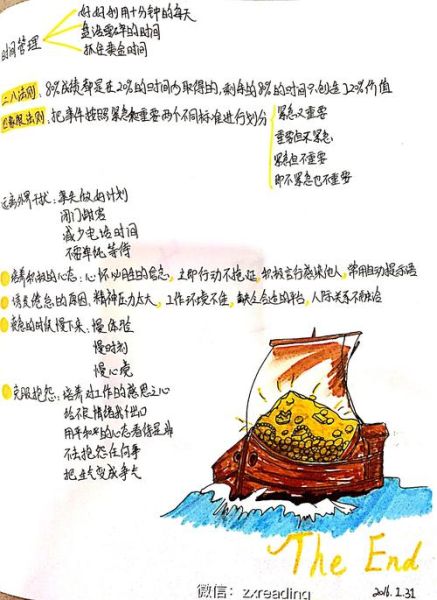 时间管理
好好利用十分钟的每天
盘活零碎的时间
抓住黄金时间
二八法则：80%成绩都是在20%的时间内取得的，剩余的80%的时间只创造了20%价值
四象限法则：把事件按照紧急和重要两个不同标准进行划分
紧急又重要
重要但不紧急
紧急但不重要
即不紧急也不重要
远离外界干扰：事先做好计划
闭门谢客
减少电话时间
不要单纯等待
培养积极的心态：心怀必胜的信念，立即行动不拖延，积极言行感染他人，常用自动提示语
诱发倦怠的原因：精神压力太大，工作环境不佳，缺乏合适的平台，人际关系不融洽
疲惫的时候慢下来：慢体验
慢时刻
慢心境
克服抱怨：培养对工作的感恩之心
给不良情绪找个出口
用平和的心态看待是非
不去抱怨任何事
把怨气变成争气
The End
微信：zxreading
2016.1.31